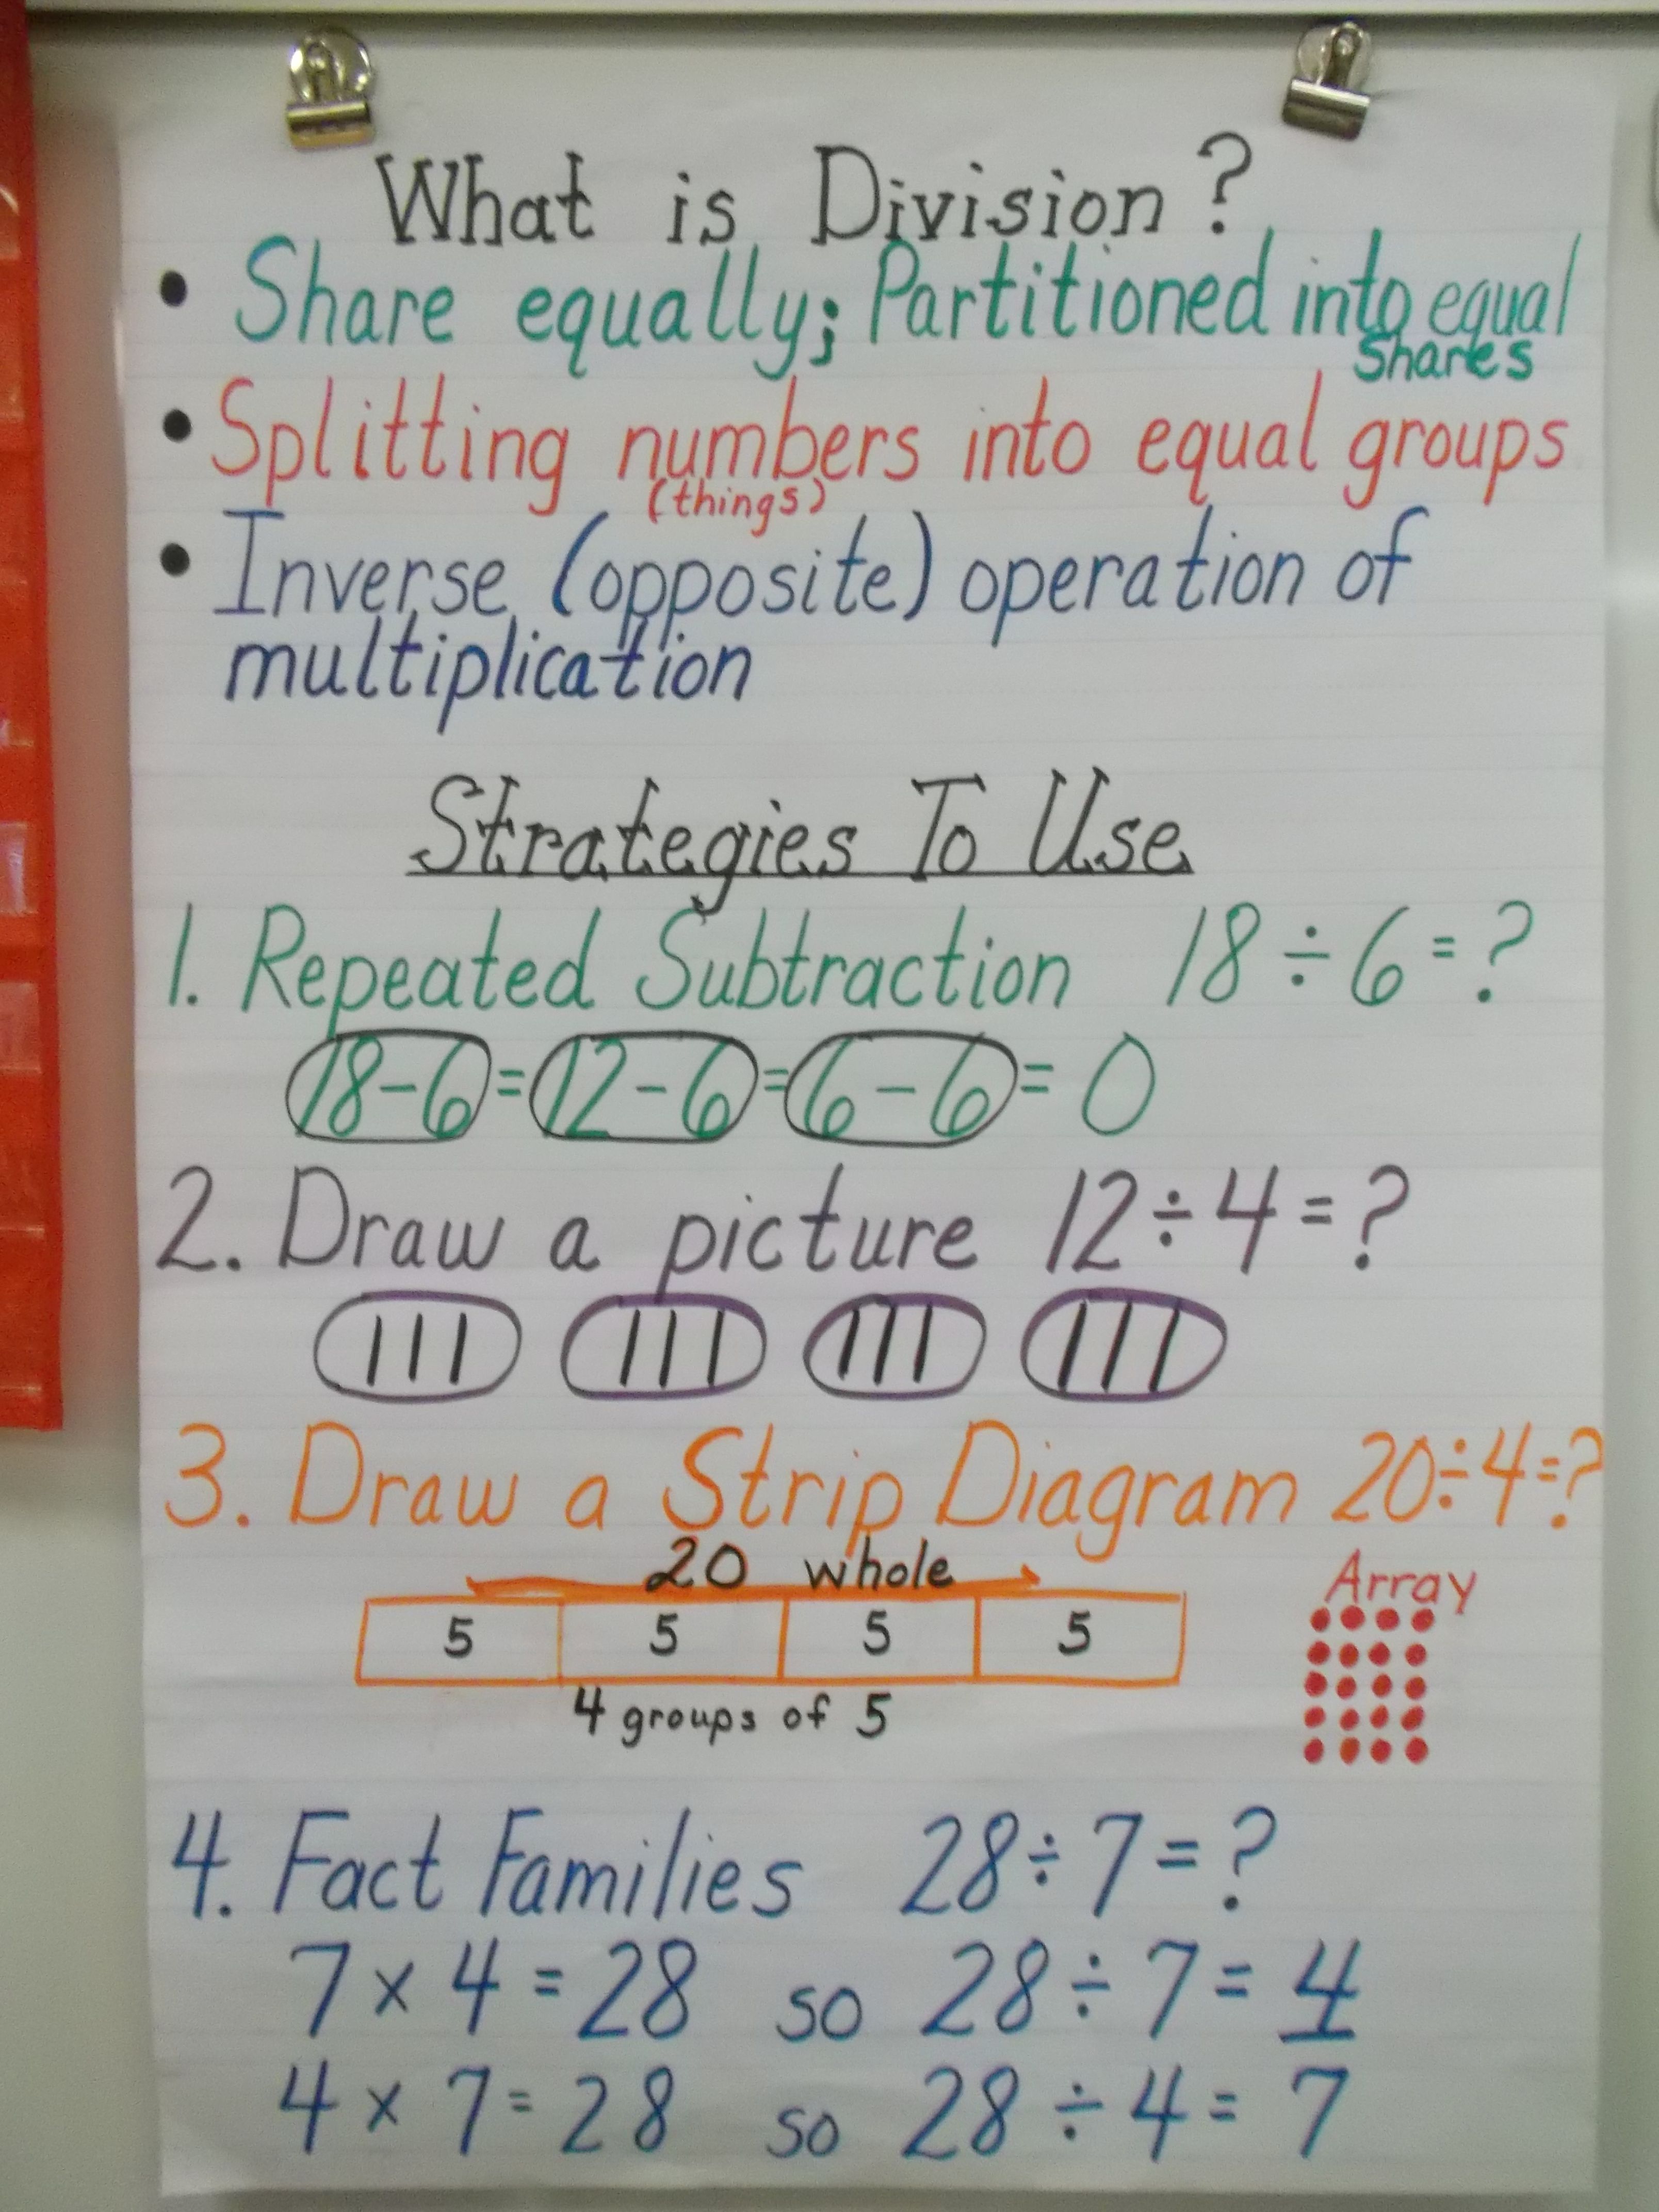 What is Division?
• Share equally; Partitioned into equal
shares
• Splitting numbers into equal groups
(things)
• Inverse (opposite) operation of
multiplication
Strategies To Use
1. Repeated Subtraction 18 ÷ 6 = ?
18-6 = 12-6 = 6-6 = 0
2. Draw a picture 12 ÷ 4 = ?
3. Draw a Strip Diagram 20÷4=?
20 whole
Array
5 5 5 5
4 groups of 5
4. Fact Families 28÷7=?
7 x 4 = 28 so 28 ÷ 7 = 4
4 x 7 = 28 so 28 ÷ 4 = 7